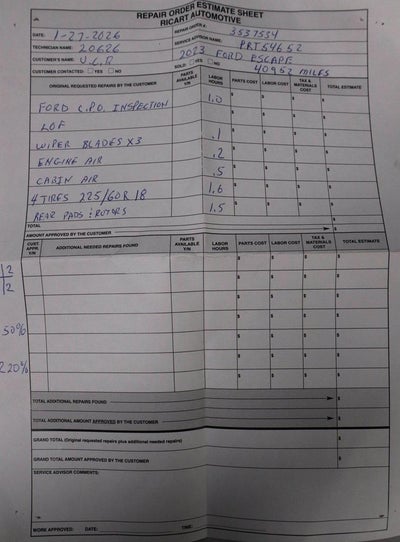 REPAIR ORDER ESTIMATE SHEET
RICART AUTOMOTIVE
DATE: 1-27-2026 REPAIR ORDER #: 3537534
TECHNICIAN NAME: 20626 SERVICE ADVISOR NAME: PRT54652
CUSTOMER'S NAME: U.C.R 2023 FORD ESCAPE
CUSTOMER CONTACTED: YES NO SOLD: YES NO 40952 MILES
ORIGINAL REQUESTED REPAIRS BY THE CUSTOMER PARTS AVAILABLE Y/N LABOR HOURS PARTS COST LABOR COST TAX & MATERIALS COST TOTAL ESTIMATE
FORD C.P.O. INSPECTION 1.0 $ $ $ $
LOF $ $ $ $
WIPER BLADES X3 .1 $ $ $ $
ENGINE AIR .2 $ $ $ $
CABIN AIR .5 $ $ $ $
4 TIRES 225/60R18 1.6 $ $ $ $
REAR PADS & ROTORS 1.5 $ $ $ $
TOTAL $
AMOUNT APPROVED BY THE CUSTOMER $
CUST. APPR. Y/N ADDITIONAL NEEDED REPAIRS FOUND PARTS AVAILABLE Y/N LABOR HOURS PARTS COST LABOR COST TAX & MATERIALS COST TOTAL ESTIMATE
12
12
50%
220%
TOTAL ADDITIONAL REPAIRS FOUND $
TOTAL ADDITIONAL AMOUNT APPROVED BY THE CUSTOMER $
GRAND TOTAL (Original requested repairs plus additional needed repairs) $
GRAND TOTAL AMOUNT APPROVED BY THE CUSTOMER $
SERVICE ADVISOR COMMENTS:
WORK APPROVED: DATE: TIME: